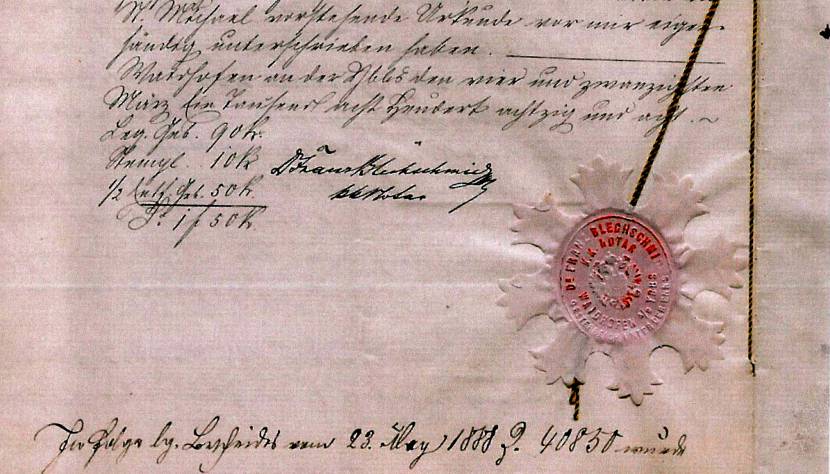 St. Michael vorstehende Urkunde vor mir eigen-
händig unterschrieben haben.
Waidhofen an der Ybbs den vier und zwanzigsten
März Ein Tausend acht Hundert achtzig und acht. ~
Leg. Geb. 90 k.
Stempl. 10 k
1/2 Geb. 50 k.
S. 1 f 50 k.
Dr Franz Blechschmid
k k Notar
Dr. FRANZ BLECHSCHMID
K.K. NOTAR
WAIDHOFEN a/d YBBS
In Folge bg. Bescheides vom 23. May 1888 Z. 40850 wurde